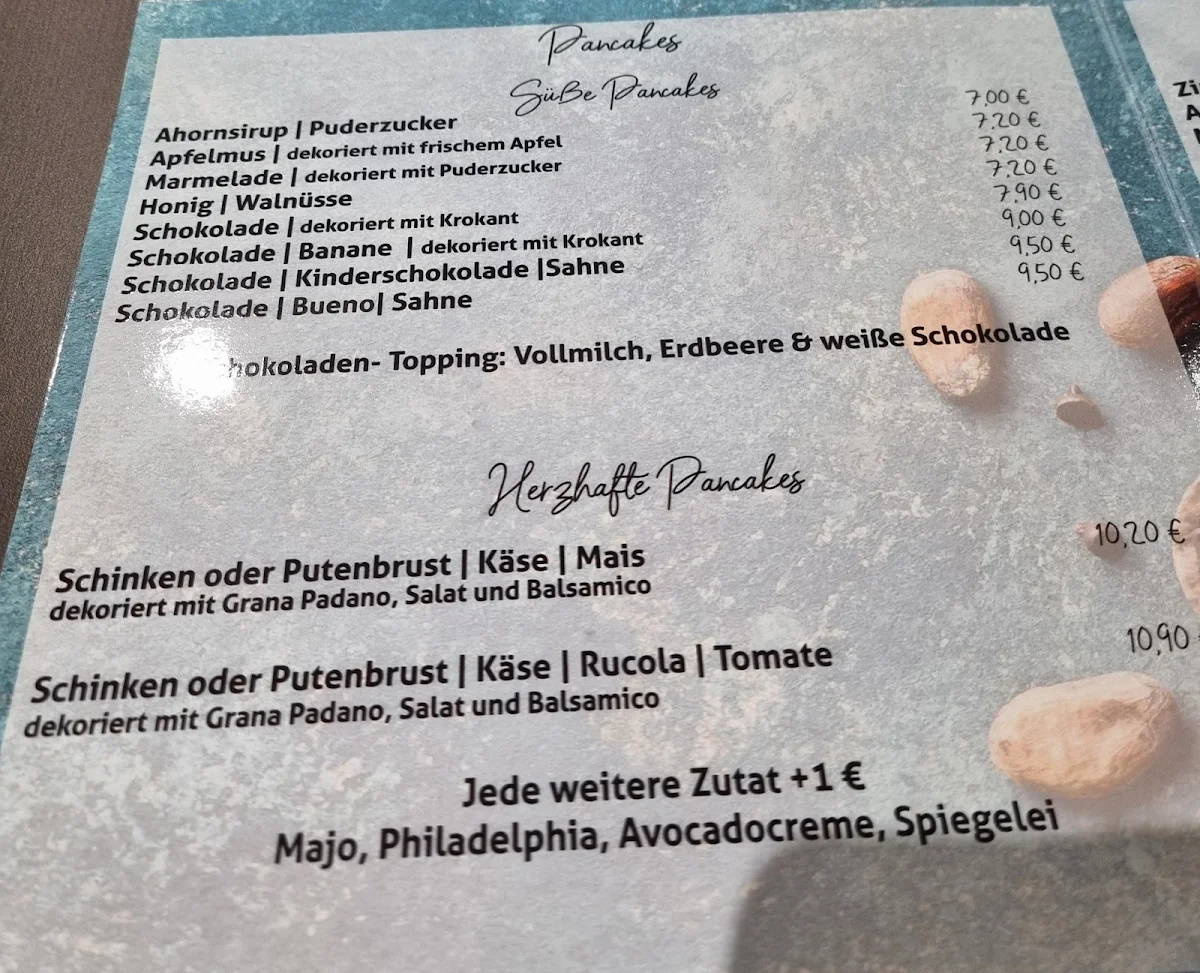 Pancakes
Süße Pancakes
Ahornsirup | Puderzucker 7,00 €
Apfelmus | dekoriert mit frischem Apfel 7,20 €
Marmelade | dekoriert mit Puderzucker 7,20 €
Honig | Walnüsse 7,20 €
Schokolade | dekoriert mit Krokant 7,90 €
Schokolade | Banane | dekoriert mit Krokant 9,00 €
Schokolade | Kinderschokolade |Sahne 9,50 €
Schokolade | Bueno| Sahne 9,50 €
Topping: Vollmilch, Erdbeere & weiße Schokolade
Herzhafte Pancakes
Schinken oder Putenbrust | Käse | Mais 10,20 €
dekoriert mit Grana Padano, Salat und Balsamico
Schinken oder Putenbrust | Käse | Rucola | Tomate 10,90
dekoriert mit Grana Padano, Salat und Balsamico
Jede weitere Zutat +1 €
Majo, Philadelphia, Avocadocreme, Spiegelei